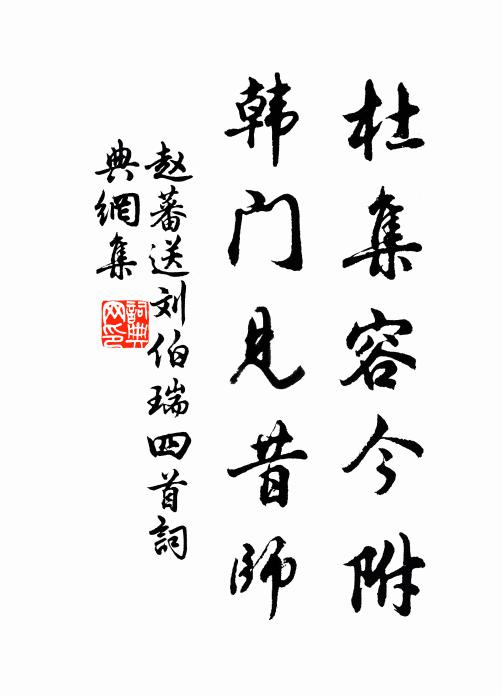 杜集容今附
韩门见昔师
赵蕃送刘伯瑞四首詞
典網集
詞典网印